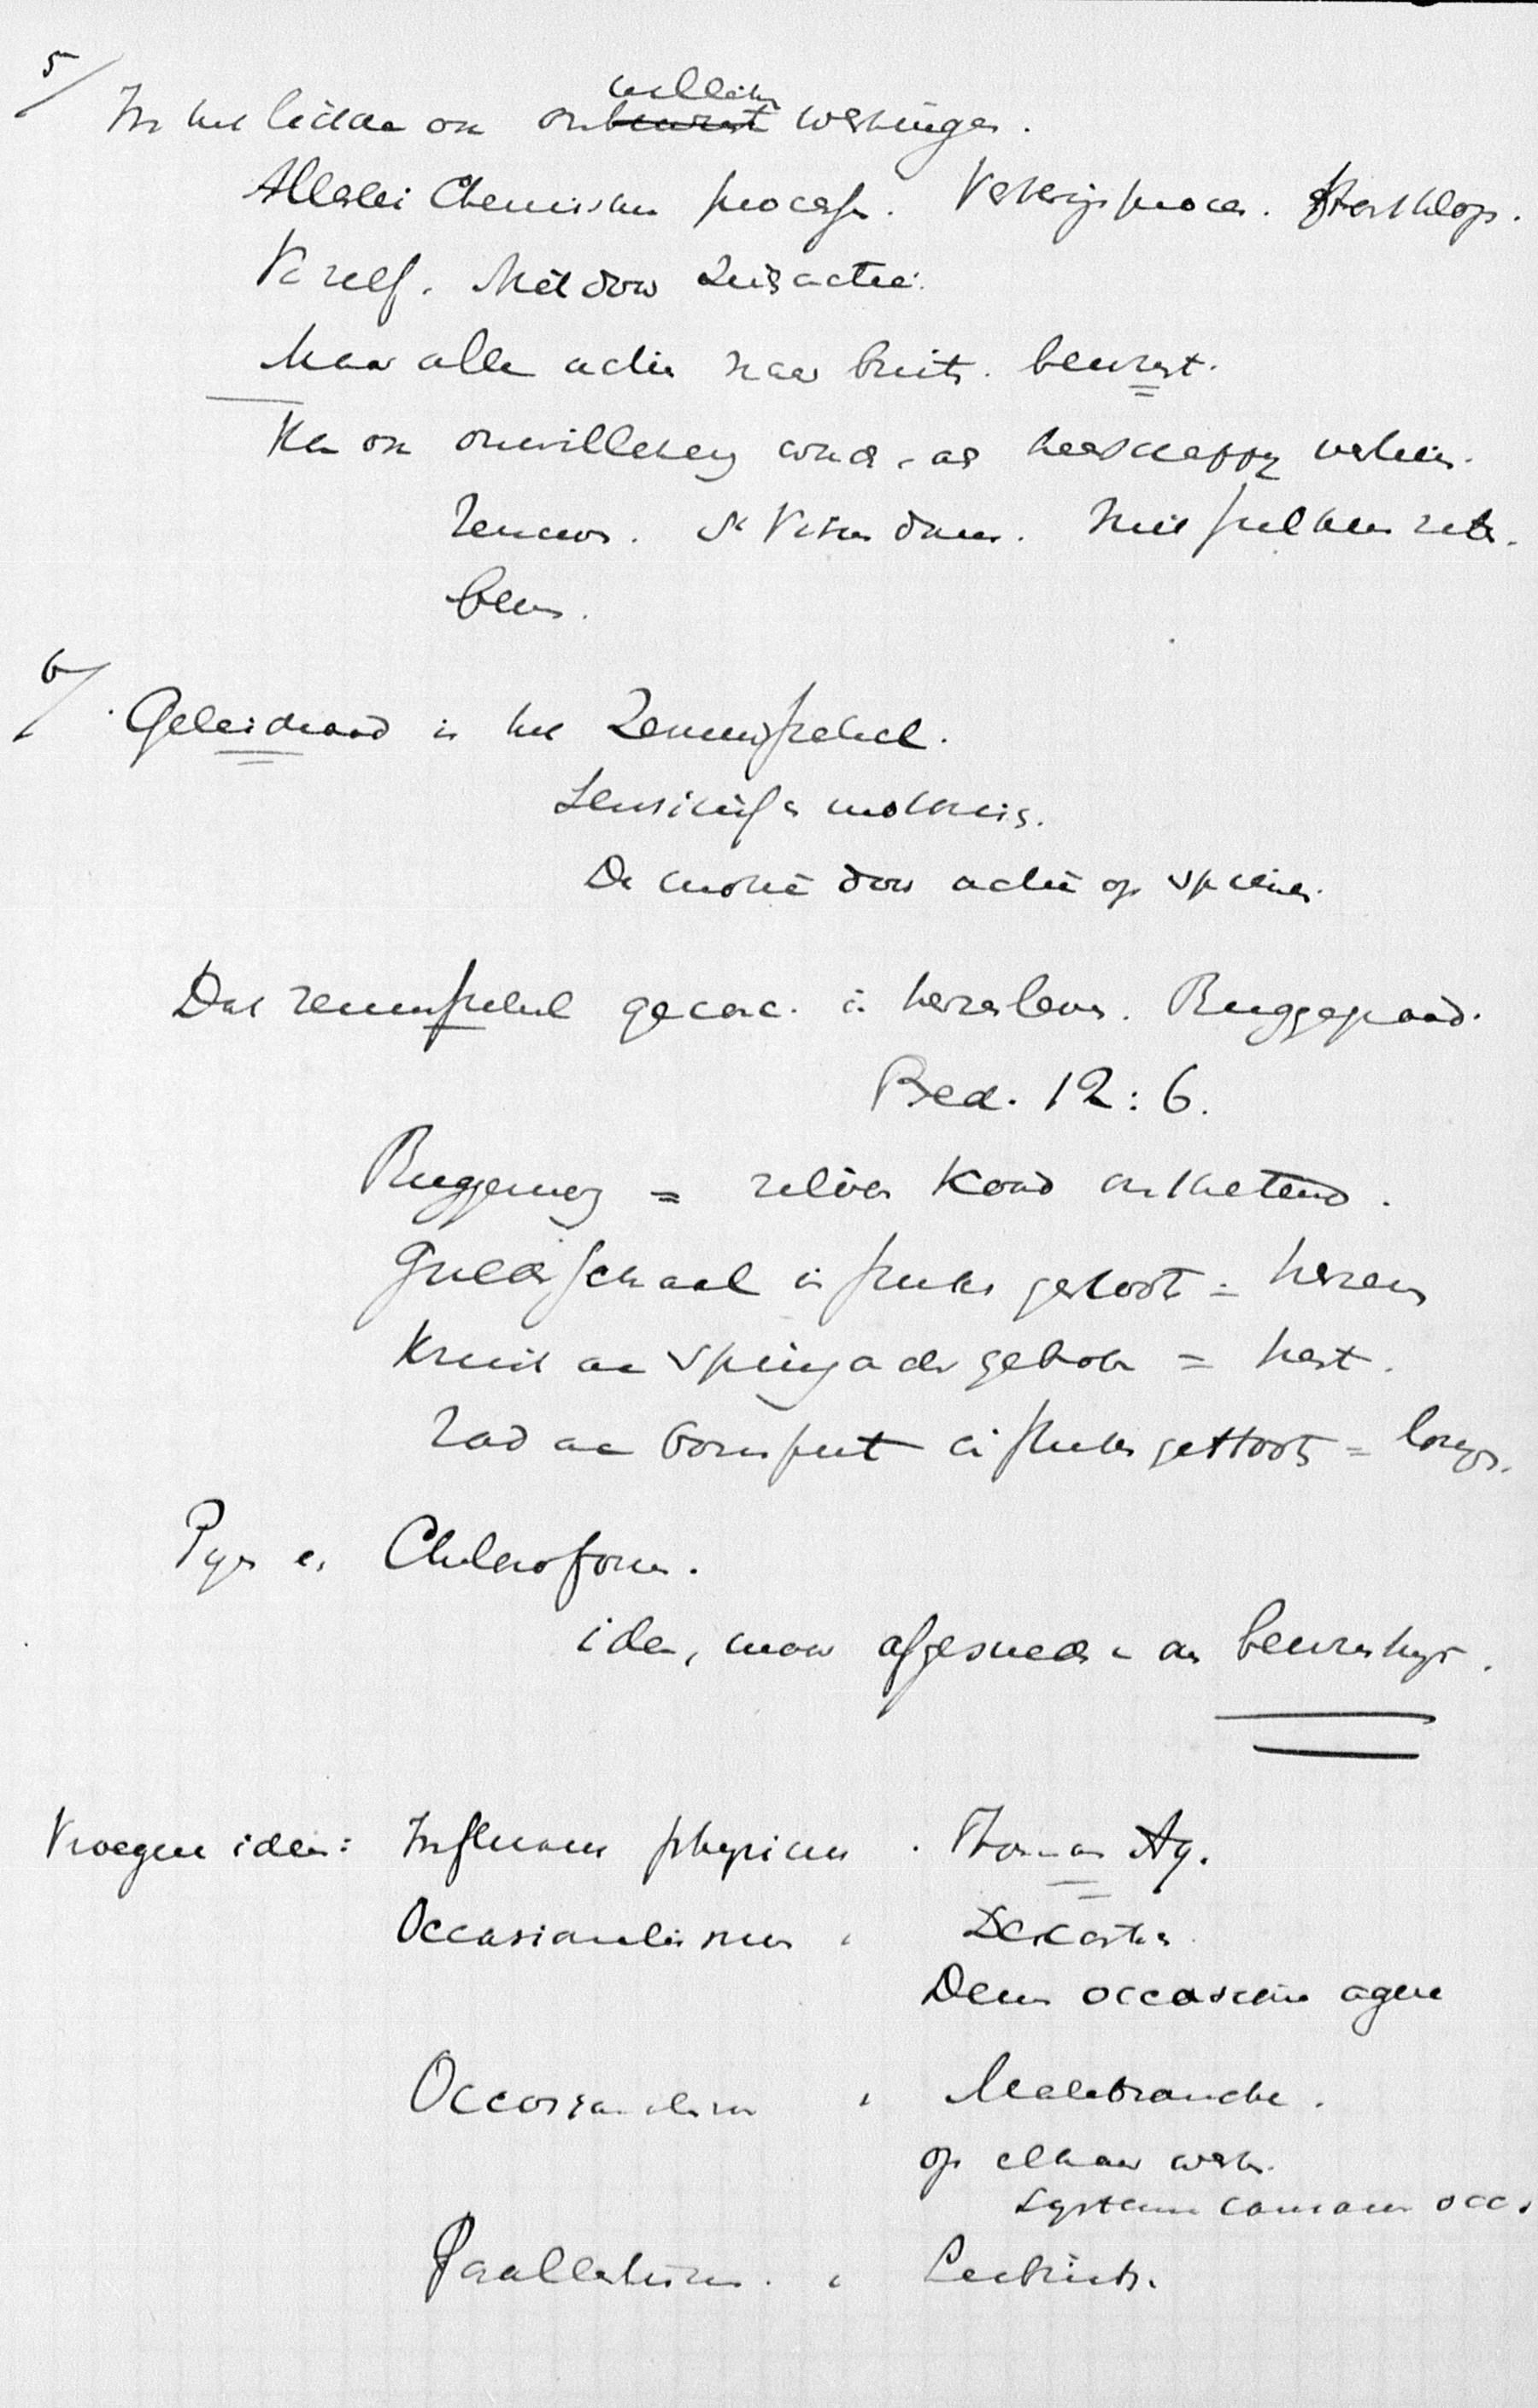 5/ In het lichaam ook onwillek. werkingen.
Allerlei Chemische process. Verterings proces. Hartklop.
Vanzelf. Niet door zielsactie.
Maar alle actie naar buiten bewust.
Kan ook onwillekeurig worden, als heerschappij verloren.
Zenuwen. St Vitus dans.
been.
6/. Geleidraad is het Zenuwstelsel.
Sensitief en motorisch.
De motie door actie op spieren.
Dat zenuwstelsel geconc. in hersenen. Ruggegraad.
Pred. 12:6.
Ruggemerg = zilver koord ontketend.
Gulden schaal in stukken gestoot = hersens
Kruik aan springader gebroken = hart.
Rad aan bornput in stukken gestoot = longen.
Pijn en Chloroform.
idem, maar afgesneden aan bewustzijn.
Vroegere ideën: Influxus physicus. Thomas Aq.
Occasionalismus, Descartes
Deus occasione agere
Occasionalism, Malebranche.
op elkaar werken.
Systema causarum occ.
Parallelisme, Leibnitz.